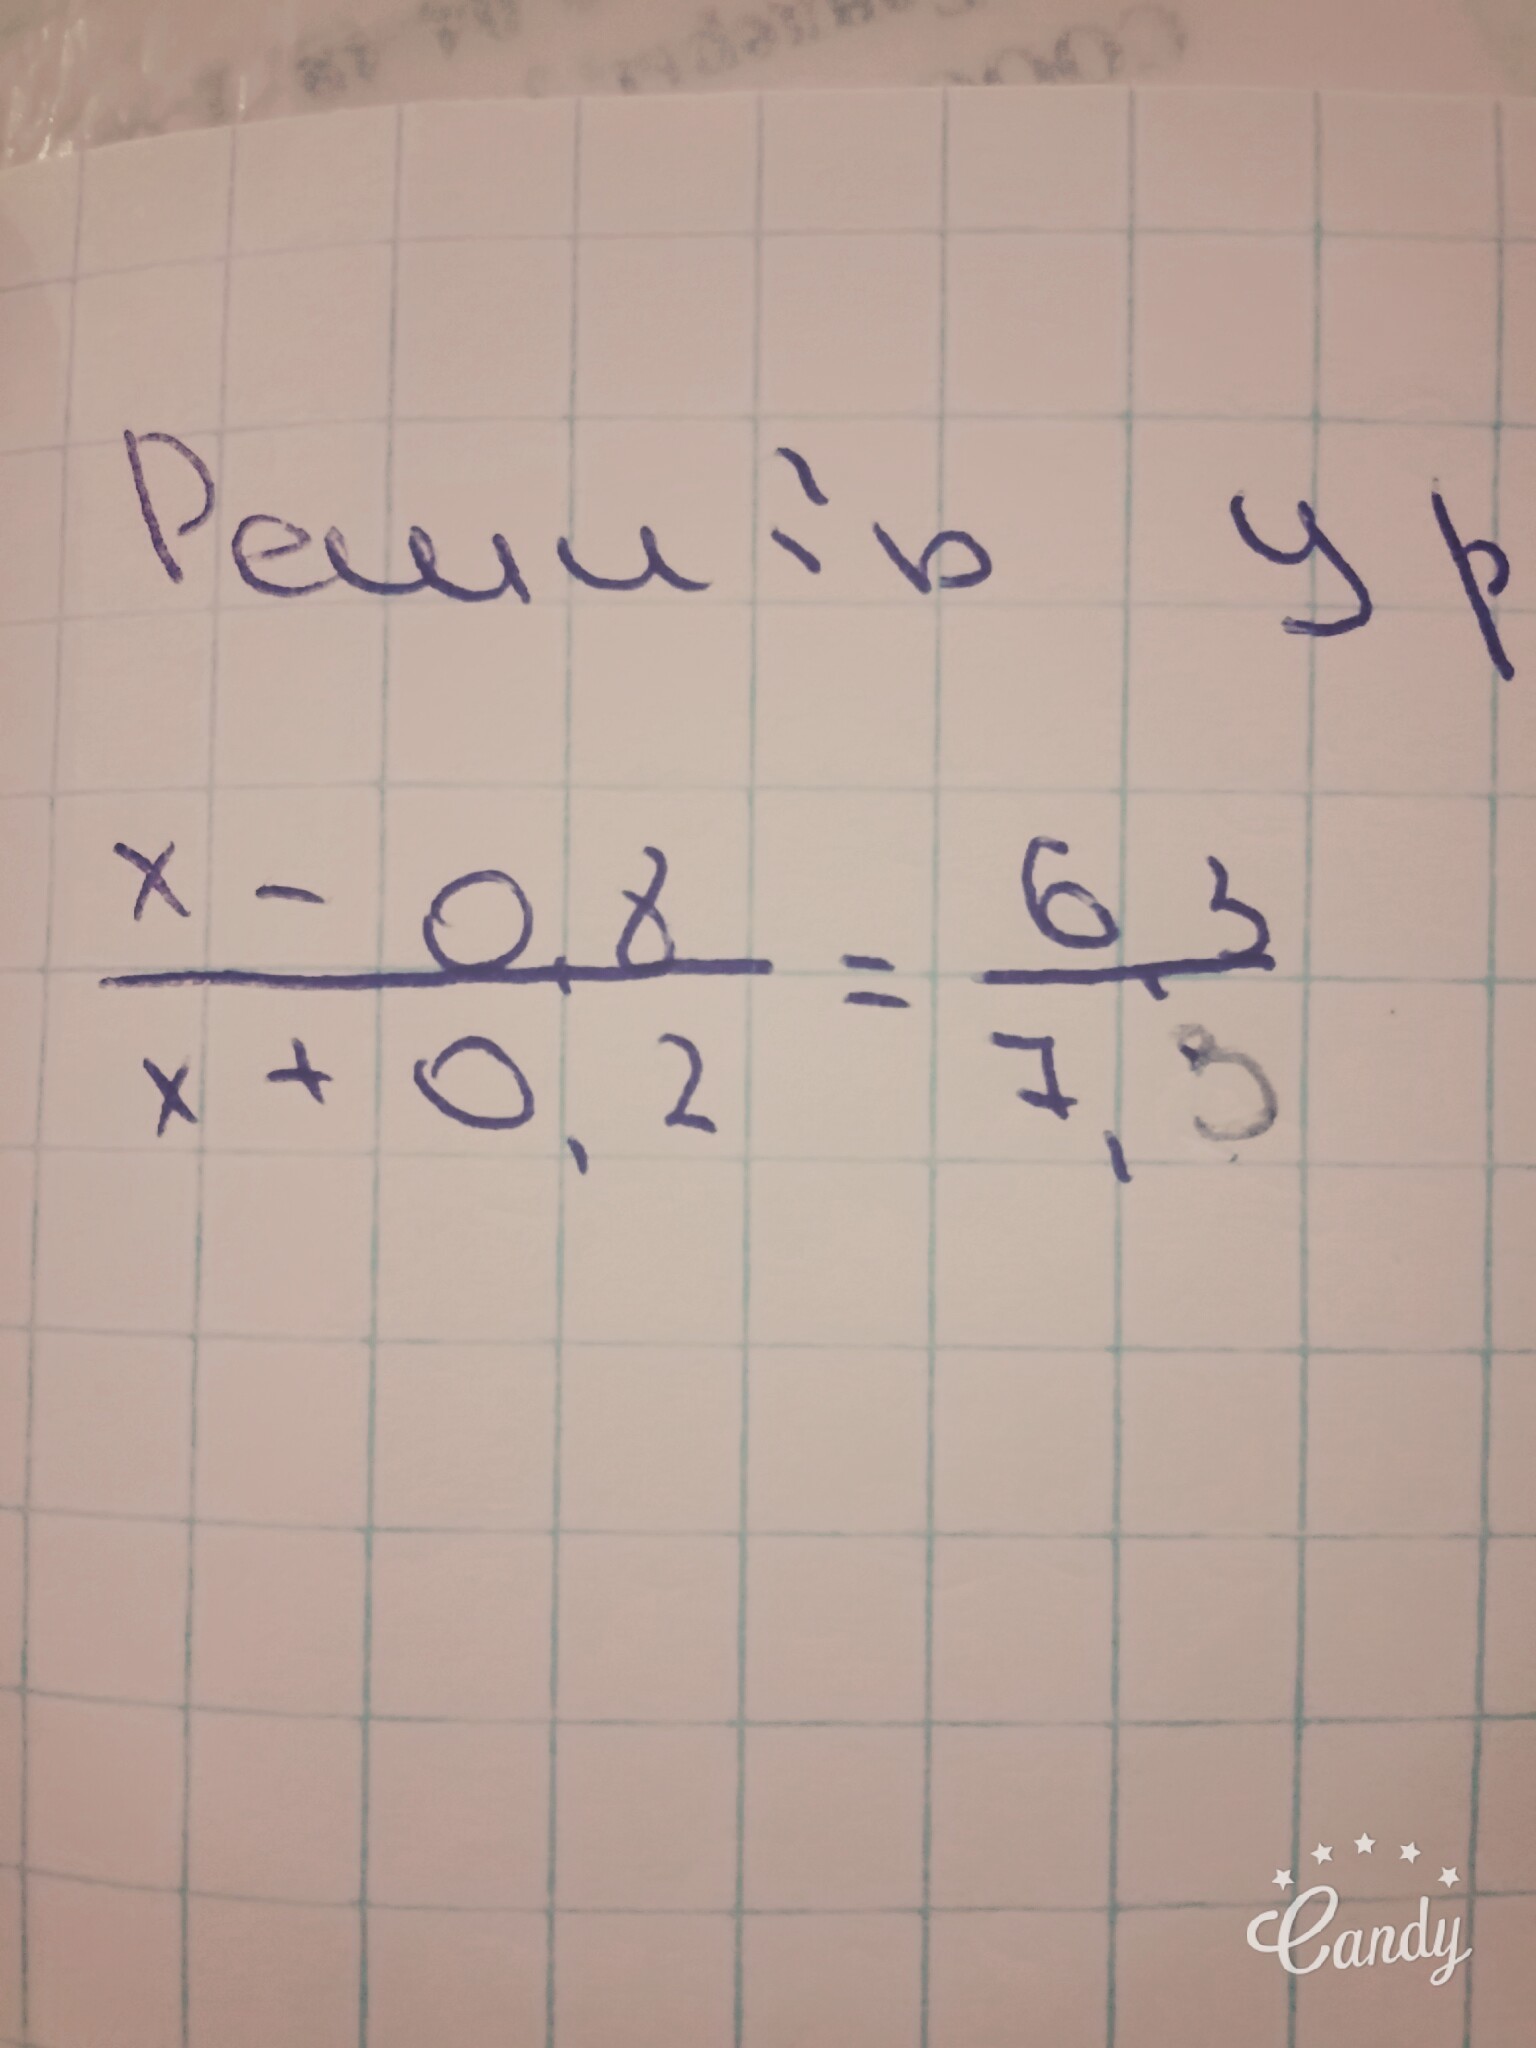 Решить ур
x - 0,8 = 6,3
x + 0,2 7,3
Candy